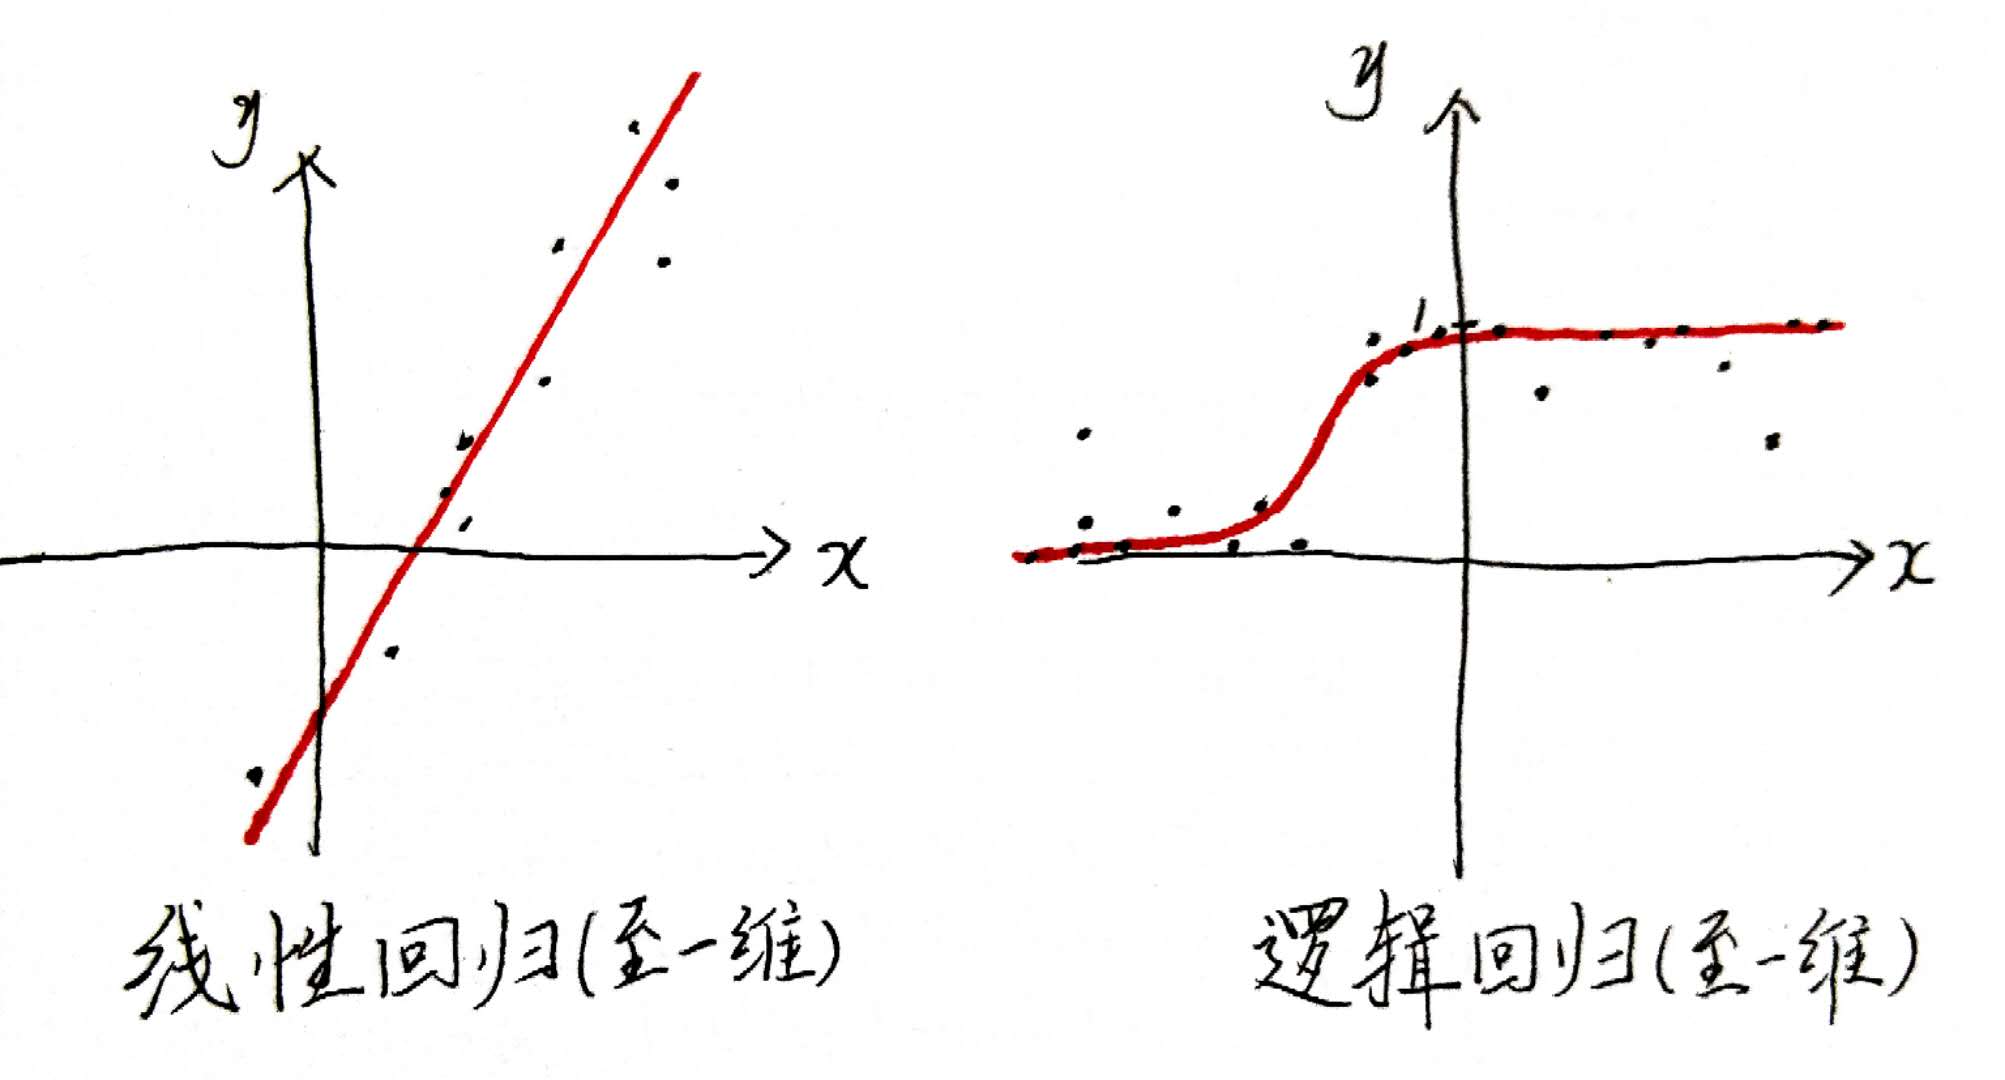 y
x
线性回归(至一维)
y
1
x
逻辑回归(至一维)